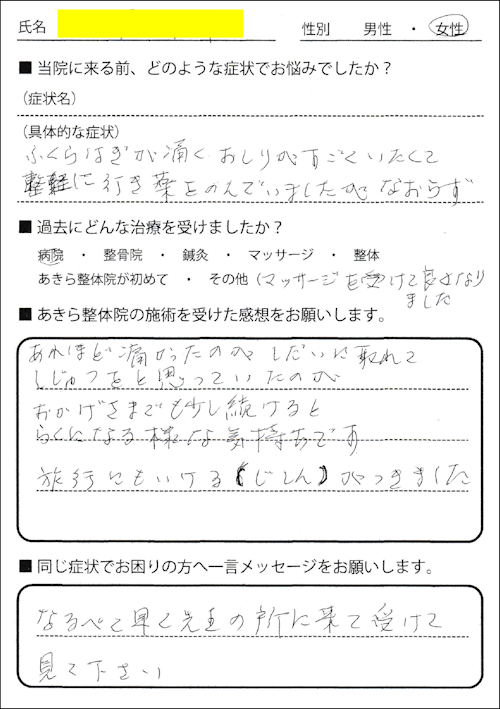 氏名 性別 男性 ・ 女性
■ 当院に来る前、どのような症状でお悩みでしたか？
（症状名）
（具体的な症状）
ふくらはぎが痛く おしりがすごくいたくて
に行き薬をのんでいましたが なおらず
■ 過去にどんな治療を受けましたか？
病院 ・ 整骨院 ・ 鍼灸 ・ マッサージ ・ 整体
あきら整体院が初めて ・ その他（マッサージを受けて良くなり
ました
■ あきら整体院の施術を受けた感想をお願いします。
あれほど痛かったのが しだいに取れて
しじゅつをと思っていたのが
おかげさまでも少し続けると
らくになる様な気持ちです
旅行にもいける（じしん）がつきました
■ 同じ症状でお困りの方へ一言メッセージをお願いします。
なるべく早く先生の所に来て受けて
見て下さい